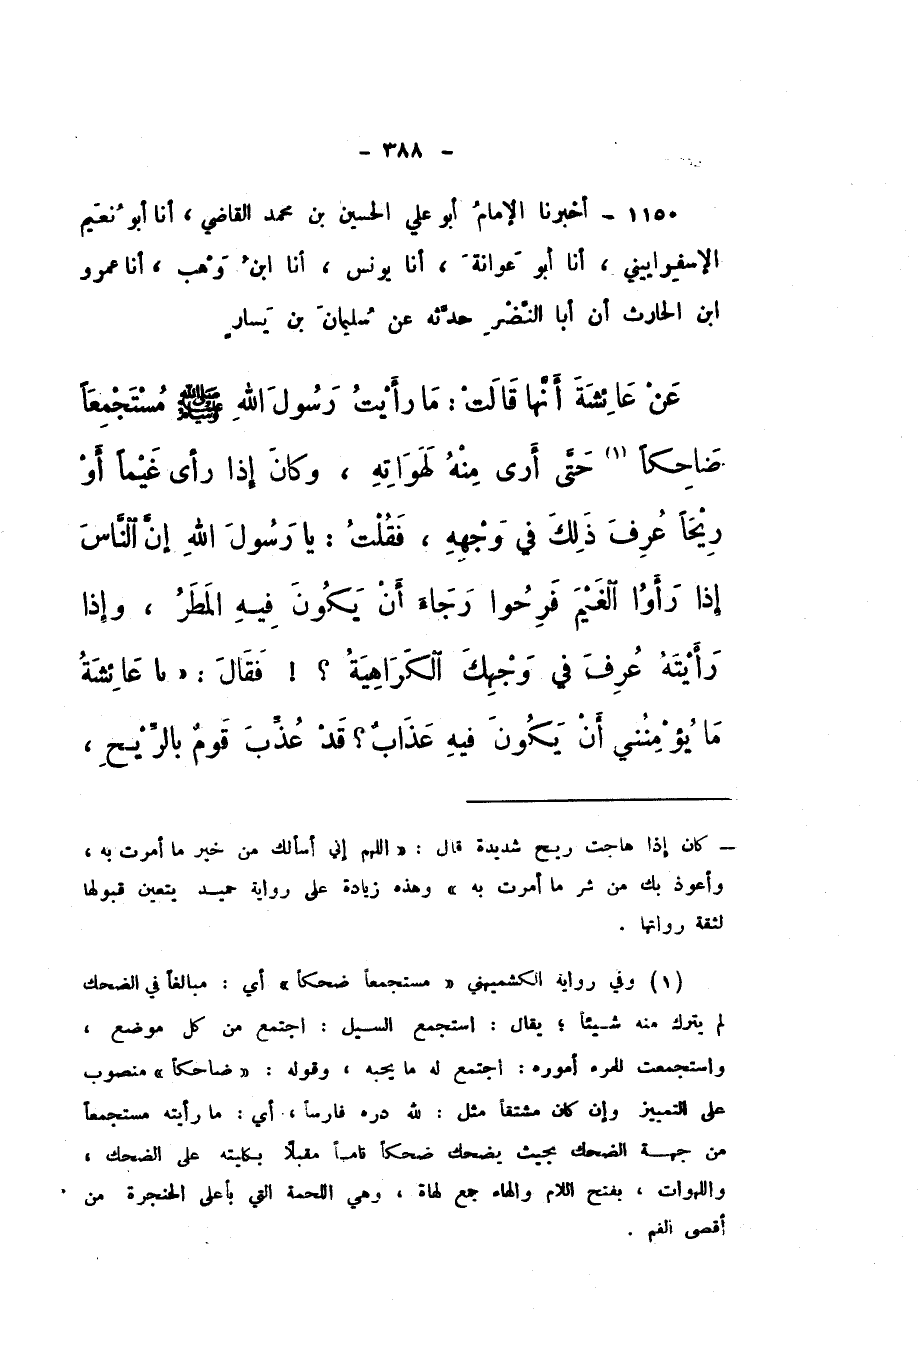 - ٣٨٨ -
١١٥٠ - أخبرنا الإمامُ أبو علي الحسين بن محمد القاضي ، أنا أبو نُعَيم
الإسفراييني ، أنا أبو عَوانةَ ، أنا يونس ، أنا ابنُ وَهْب ، أنا عمرو
ابن الحارث أن أبا النَّضْرِ حدَّثه عن سُليمانَ بن يَسارٍ
عَنْ عَائِشَةَ أَنَّها قَالَتْ : مَا رأَيْتُ رَسُولَ اللهِ ﷺ مُسْتَجْمِعَاً
ضَاحِكاً (١) حَتَّى أَرى مِنْهُ لَهَوَاتِهِ ، وكانَ إذا رأى غَيْماً أَوْ
رِيْحَاً عُرِفَ ذَلِكَ في وَجْهِهِ ، فَقُلْتُ : يا رَسُولَ اللهِ إنَّ النَّاسَ
إذا رَأَوُا الغَيْمَ فَرِحُوا رَجَاءَ أَنْ يَكُونَ فِيهِ المَطَرُ ، وإذا
رَأَيْتَهُ عُرِفَ في وَجْهِكَ الكَرَاهِيَةُ ؟ ! فَقَالَ : « يا عَائِشَةُ
مَا يُؤْمِنُني أَنْ يَكُونَ فيهِ عَذَابٌ ؟ قَدْ عُذِّبَ قَومٌ بالرِّيْحِ ،
— كان إذا هاجت ريح شديدة قال : « اللهم إني أسألك من خير ما أمرت به ،
وأعوذ بك من شر ما أمرت به » وهذه زيادة على رواية حميد يتعين قبولها
لثقة رواتها .
(١) وفي رواية الكشميهني « مستجمعاً ضحكاً » أي : مبالغاً في الضحك
لم يترك منه شيئاً ؛ يقال : استجمع السيل : اجتمع من كل موضع ،
واستجمعت للمرء أموره : اجتمع له ما يحبه ، وقوله : « ضاحكاً » منصوب
على التمييز وإن كان مشتقاً مثل : لله دره فارساً ، أي : ما رأيته مستجمعاً
من جهة الضحك بحيث يضحك ضحكاً تاماً مقبلاً بكليته على الضحك ،
واللهوات ، بفتح اللام والهاء جمع لهاة ، وهي اللحمة التي بأعلى الحنجرة من
أقصى الفم .